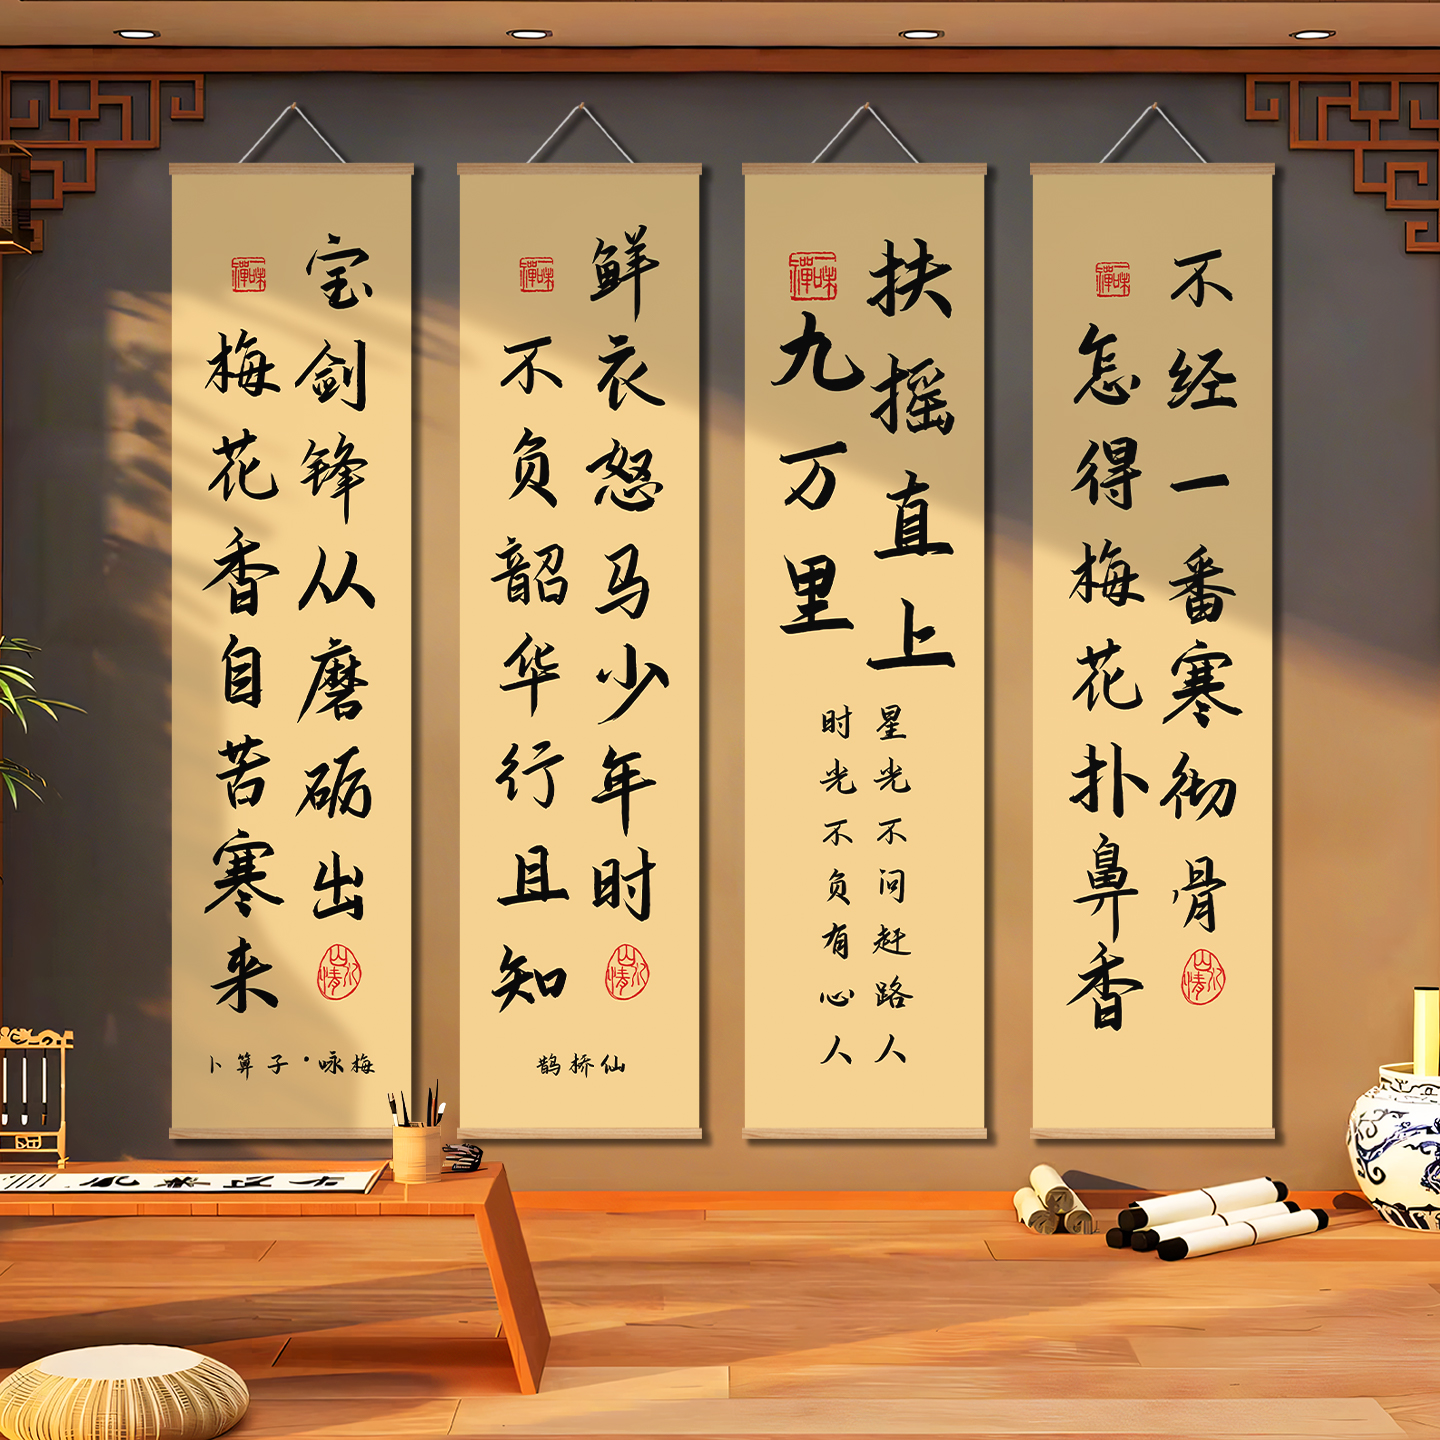 宝剑锋从磨砺出
梅花香自苦寒来
卜算子·咏梅
鲜衣怒马少年时
不负韶华行且知
鹊桥仙
扶摇直上
九万里
星光不问赶路人
时光不负有心人
不经一番寒彻骨
怎得梅花扑鼻香